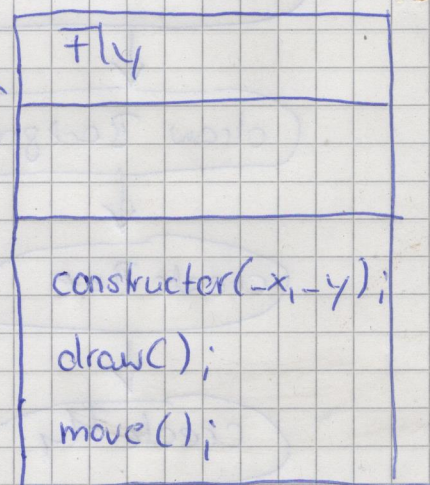 Fly
constructer(_x, _y);
draw();
move();